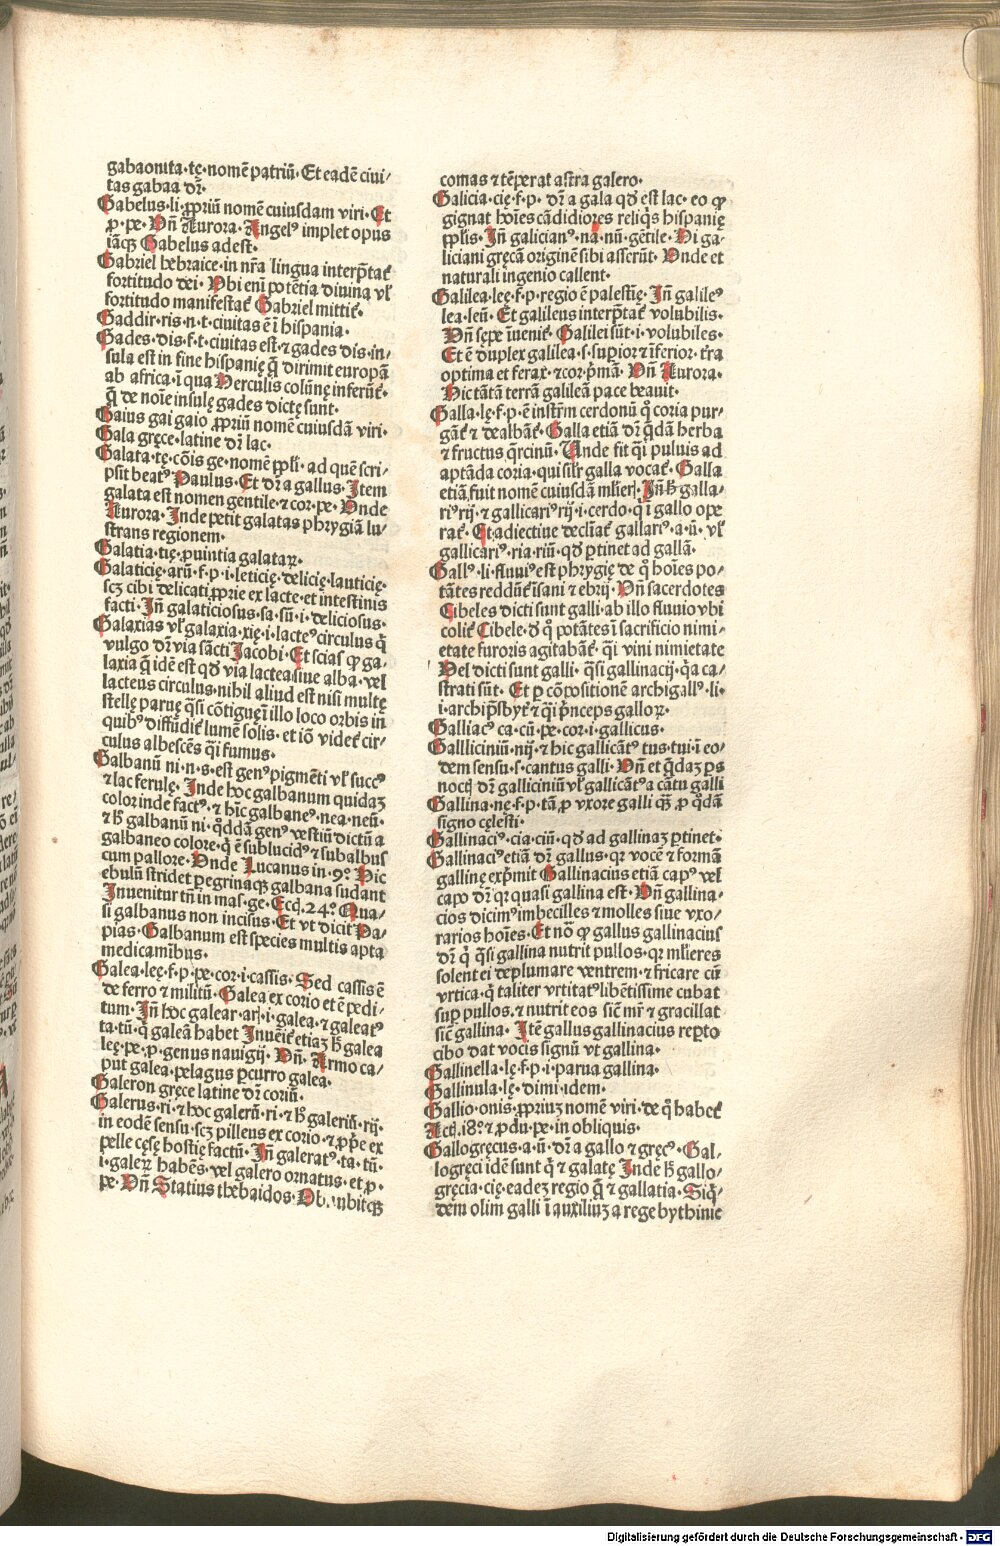 gabaonita·tę·nomē patriū·Et eadē ciui/
tas gabaa dr̄·
Gabelus·li·ꝓpriū nomē cuiusdam viri·Et
ꝓ·pe·Vn̄ Aurora·Angelꝰ implet opus
iāqꝫ Gabelus adest·
Gabriel hebraice·in nr̄a lingua interp̄tat᷑
fortitudo dei·Vbi eni᷑ potētia diuina vl᷑
fortitudo manifestat᷑ Gabriel mittit᷑·
Gaddir·ris·n·t·ciuitas ē ī hispania·
Gades·dis·f·t·ciuitas est·⁊ gades dis·in/
sula est in fine hispanię q̄ dirimit europā
ab africa·ī qua Herculis colūnę inferūt᷑·
q̄ de noīe insulę gades dictę sunt·
Gaius gai gaio ꝓpriū nomē cuiusdā viri·
Gala gręce·latine dr̄ lac·
Galata·tę·cōis ge·nomē ppl̄i·ad quē scri/
psit beatꝰ Paulus·Et dr̄ a gallus·Item
galata est nomen gentile·⁊ cor·pe·Vnde
Aurora·Inde petit galatas phrygiā lu/
strans regionem·
Galatia·tię·ꝓuintia galataꝝ·
Galaticię·arū·f·p·i·leticię·delicię·lauticię·
scꝫ cibi delicati ꝓprie ex lacte·et intestinis
facti·In̄ galaticiosus·sa·sū·i·deliciosus·
Galaxias vl᷑ galaxia·xię·i·lacteꝰ circulus q̄
vulgo dr̄ via sācti Jacobi·Et scias ꝙ ga·
laxia q̄ idē est qd̄ via lactea siue alba·vel
lacteus circulus·nihil aliud est nisi multę
stellę paruę q̄si cōtigue ī illo loco orbis in
quibꝰ diffūdit᷑ lumē solis·et iō videt᷑ cir/
culus albescēs q̄i fumus·
Galbanū ni·n·s·est genꝰ pigmēti vl᷑ succꝰ
⁊ lac ferulę·Inde hoc galbanum quidaꝫ
color inde factꝰ·⁊ hīc galbaneꝰ·nea·neū·
⁊ h̄ galbanū ni·q̄ddā genꝰ vestiū dictū a
galbaneo colore·q̄ ē sublucidꝰ ⁊ subalbus
cum pallore·Vnde Lucanus in·9º·Hic
ebulū stridet peregrinaqꝫ galbana sudant
Inuenitur tn̄ in mas·ge·Ecq̄·24º·Qua/
si galbanus non incisus·Et vt dicit Pa/
pias·Galbanum est species multis apta
medicamībus·
Galea·leę·f·p·pe·cor·i·cassis·Sed cassis ē
de ferro ⁊ militū·Galea ex corio et ē pedi/
tum·In̄ hoc galear·ar·i·galea·⁊ galeatꝰ
ta·tū·q̄ galeā habet Inuēit᷑ etiaꝫ h̄ galea
leę·pe·ꝓ·genus nauigij·Vn̄·Armo ca/
put galea·pelagus ꝑcurro galea·
Galeron gręce latine dr̄ coriū·
Galerus·ri·⁊ hoc galerū·ri·⁊ h̄ galeriū·rij·
in eodē sensu·scꝫ pilleus ex corio·⁊ ꝓp̄e ex
pelle cęsę hostię factū·In̄ galeratꝰ·ta·tū·
i·galeꝝ habēs·vel galero ornatus·et ꝓ·
pe·Vn̄ Statius thebaidos·Obnubitqꝫ
comas ⁊ tēperat astra galero·
Galicia·cię·f·p·dr̄ a gala qd̄ est lac·eo ꝙ
gignat hoīes cādidiores reliq̄s hispanię
ppl̄is·In̄ galicianꝰ·na·nū·gētile·Hi ga/
liciani gręcā originē sibi asserūt·Vnde et
naturali ingenio callent·
Galilea·leę·f·p·regio ē palestię·In̄ galileꝰ
lea·leū·Et galileus interp̄tat᷑ volubilis·
Vn̄ sępe īuenit᷑·Galilei sūt·i·volubiles·
Et ē duplex galilea·s·supior ⁊ īferior·tr̄a
optima et ferax·⁊ cor·p̄mā·Vn̄ Aurora·
Hic tātā terrā galileā pace beauit·
Galla·lę·f·p·ē instr̄m cerdonū q̄ coria pur/
gāt᷑ ⁊ dealbāt᷑·Galla etiā dr̄ q̄dā herba
⁊ fructus q̄rcinū·Unde fit q̄i puluis ad
aptāda coria·qui sil᷑r galla vocat᷑·Galla
etiā fuit nomē cuiusdā ml᷑ieꝝ·In̄ h̄ galla/
riꝰ rij·⁊ gallicariꝰ rij·i·cerdo·q̄ ī gallo ope
rat᷑·Et adiectiue declīat᷑ gallarꝰ·a·ū·vl᷑
gallicariꝰ·ria·riū·qd̄ ꝑtinet ad gallā·
Gallꝰ·li·fluuiꝰ est phrygię de q̄ hoīes po/
tātes reddūt᷑ īsani ⁊ ebrij·Vn̄ sacerdotes
Cibeles dicti sunt galli·ab illo fluuio vbi
colit᷑ Cibele·d q̄ potātes ī sacrificio nimi/
etate furoris agitabāt᷑·q̄i vini nimietate
Vel dicti sunt galli·q̄si gallinacij·q̄a ca/
strati sūt·Et ꝑ cōpositionē archigallꝰ·li·
i·archip̄sbyt᷑ ⁊ q̄i p̄nceps galloꝝ·
Galliacꝰ ca·cū·pe·cor·i·gallicus·
Gallliciniū·nij·⁊ hic gallicātꝰ tus·tui·i eo/
dem sensu·s·cantus galli·Vn̄ et q̄daꝫ ꝑs
noctꝭ dr̄ galliciniū vl᷑ gallicātꝰ a cātu galli
Gallina·nę·f·p·tā ꝓ vxore galli qꝫ̄ ꝓ q̄dā
signo cęlesti·
Gallinaciꝰ·cia·ciū·qd̄ ad gallinaꝫ ꝑtinet·
Gallinaciꝰ etiā dr̄ gallus·qr vocē ⁊ formā
gallinę exp̄mit Gallinacius etiā capꝰ vel
capo dr̄ qr quasi gallina est·Vn̄ gallina/
cios dicimꝰ imbecilles ⁊ molles siue vxo/
rarios hoīes·Et nō ꝙ gallus gallinacius
dr̄ q̄ q̄si gallina nutrit pullos·qr ml᷑ieres
solent ei deplumare ventrem·⁊ fricare cū
vrtica·q̄ taliter vrtitatꝰ libētissime cubat
sup pullos·⁊ nutrit eos sic̄ mr̄ ⁊ gracillat
sic̄ gallina·Itē gallus gallinacius reꝑto
cibo dat vocis signū vt gallina·
Gallinella·lę·f·p·i·parua gallina·
Gallinula·lę·dimi·idem·
Gallio·onis·ꝓpriuꝫ nomē viri·de q̄ habet᷑
Actꝭ·18º·⁊ ꝓdu·pe·in obliquis·
Gallogręcus·a·ū·dr̄ a gallo ⁊ gręcꝰ·Gal/
logręci idē sunt q̄ ⁊ galatę Inde h̄ gallo/
gręcia·cię·eadeꝫ regio q̄ ⁊ gallatia·Siq̄/
dem olim galli ī auxiliuꝫ a rege bythinię
Digitalisierung gefördert durch die Deutsche Forschungsgemeinschaft - DFG